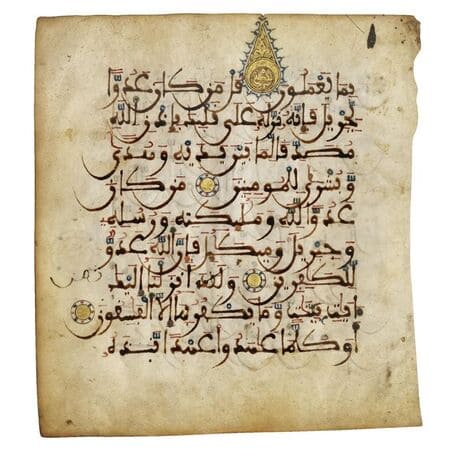 بما يعملون قل من كان عدوا
لجبريل فإنه نزله على قلبك بإذن الله
مصدقا لما بين يديه وهدى
وبشرى للمومنين من كان
عدوا لله وملئكته ورسله
وجبريل وميكل فإن الله عدو
للكفرين ولقد أنزلنا إليك
ءايت بينت وما يكفر بها إلا الفسقون
أو كلما عهدوا عهدا نبذه